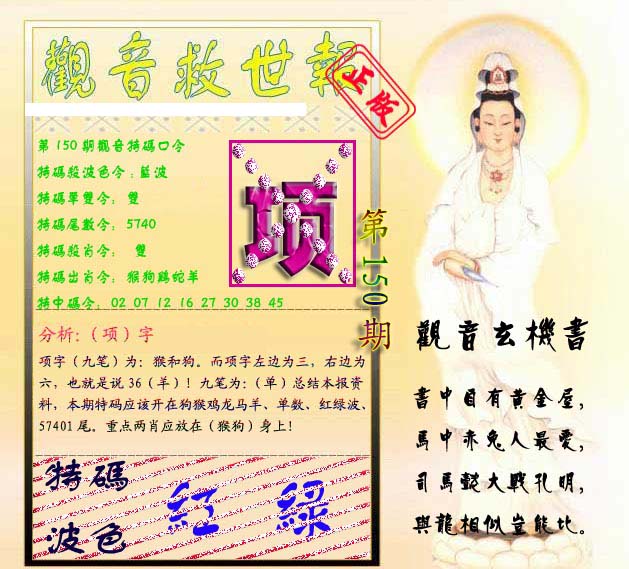 觀音救世報
正版
第150期觀音特碼口令
特碼殺波色令:藍波
特碼單雙令: 雙
特碼尾數令: 5740
特碼殺肖令: 雙
特碼出肖令: 猴狗鷄蛇羊
特中碼令: 02 07 12 16 27 30 38 45
项
第150期
分析:（项）字
项字（九笔）为：猴和狗。而项字左边为三，右边为
六，也就是说36（羊）！九笔为:（单）总结本报资
料，本期特码应该开在狗猴鸡龙马羊、单数、红绿波、
57401尾。重点两肖应放在（猴狗）身上!
特碼
波色
紅 綠
觀音玄機書
書中自有黃金屋,
馬中赤兔人最愛,
司馬懿大戰孔明,
與龍相似豈能比。